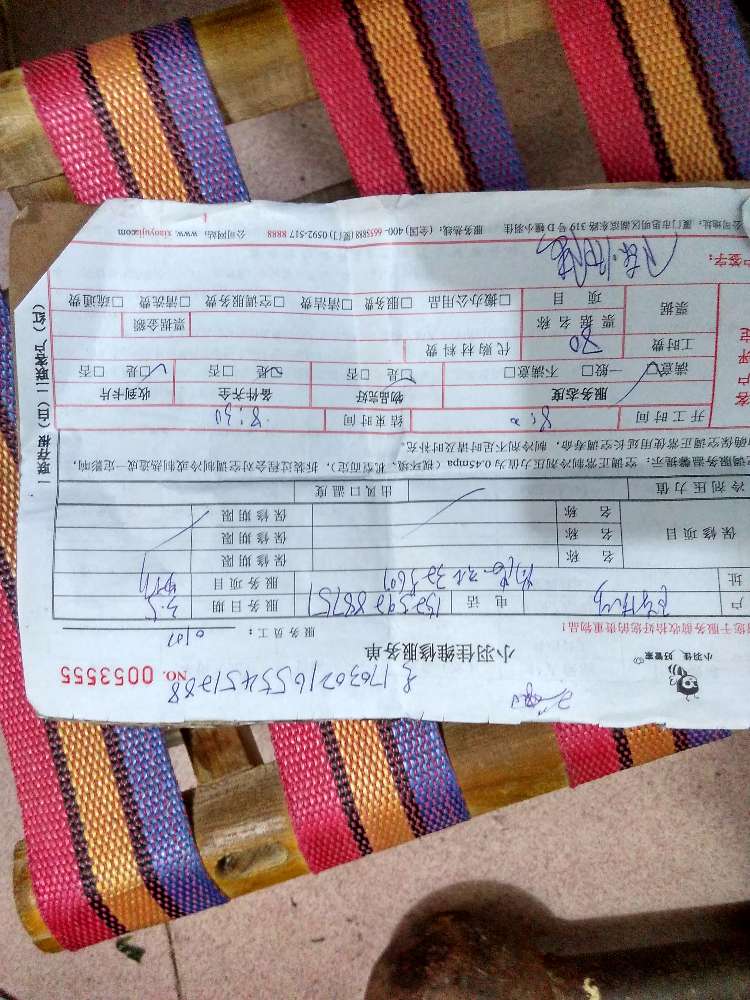 小羽佳 好管家
小羽佳维修服务单
NO. 0053555
您于服务前收拾好您的贵重物品!
服务员工:
户
电话
服务日期 3.5
址
服务项目
保修项目
名称
保修期限
名称
保修期限
名称
保修期限
冷剂压力值
出风口温度
调服务温馨提示:空调正常制冷剂压力值为0.45mpa(视环境、机型而定),拆装过程会对空调制冷或制热造成一定影响,
确保空调正常使用延长空调寿命,制冷剂不足时请及时补充。
开工时间 8:00
结束时间 8:30
服务态度
物品完好
备件齐全
收到卡片
满意□ 一般□ 不满意□
□是 □否
□是 □否
□是 □否
工时费 80
代购材料费
票据
票据名称
票据金额
项目
□搬办公用品 □服务费 □清洁费 □空调服务费 □清洗费 □疏通费
户签字:
公司地址:厦门市思明区湖滨东路319号D幢小羽佳 服务热线:(全国)400-6655888 (厦门)0592-517 8888 公司网站:www.xiaoyujia.com
一联存根(白)二联客户(红)